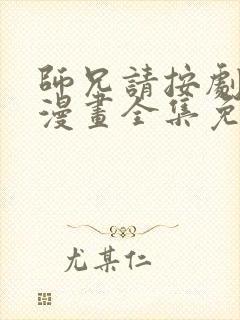 師兄請按劇
漫畫全集免
尤某仁